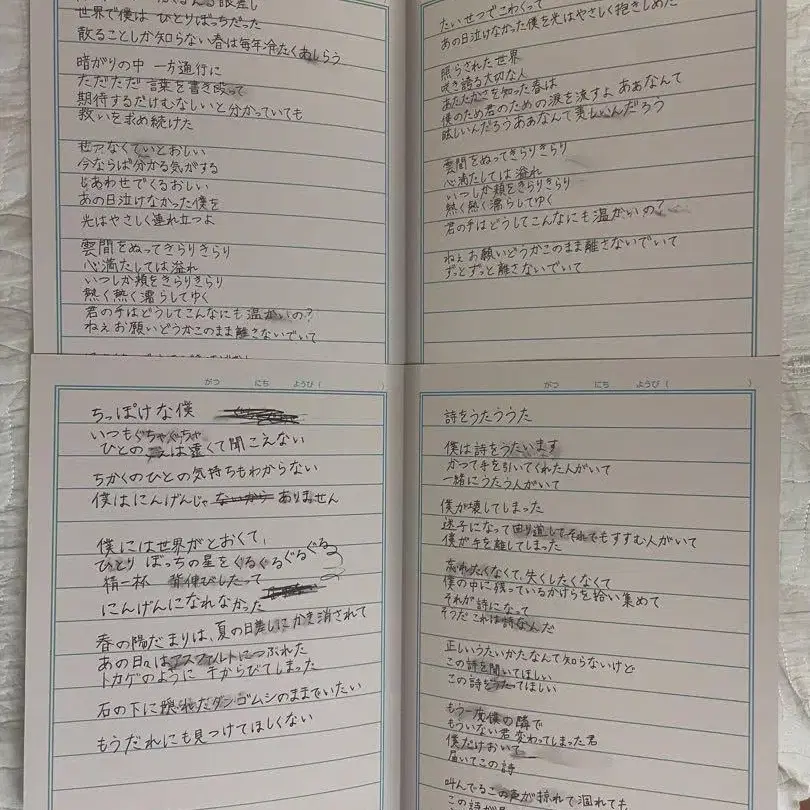 世界で僕は ひとりぼっちだった
散ることしか知らない春は毎年冷たくあしらう
暗がりの中 一方通行に
ただただ 言葉を書き殴って
期待するだけむなしいと分かっていても
救いを求め続けた
せつなくていとおしい
今ならば分かる気がする
しあわせでくるおしい
あの日泣けなかった僕を
光はやさしく連れ立つよ
雲間をぬってきらりきらり
心満たしては溢れ
いつしか頬をきらりきらり
熱く熱く濡らしてゆく
君の手はどうしてこんなにも温かいの?
ねぇお願いどうかこのまま離さないでいて
たいせつでこわくって
あの日泣けなかった僕を光はやさしく抱きしめた
照らされた世界
咲き誇る大切な人
あたたかさを知った春は
僕のため君のための涙を流すよ あぁなんて
眩しいんだろうあぁなんて美しいんだろう
雲間をぬってきらりきらり
心満たしては溢れ
いつしか頬をきらりきらり
熱く熱く濡らしてゆく
君の手はどうしてこんなにも温かいの?
ねぇお願いどうかこのまま離さないでいて
ずっとずっと離さないでいて
がつ にち ようび( )
ちっぽけな僕
いつもぐちゃぐちゃ
ひとの は遠くて聞こえない
ちかくのひとの気持ちもわからない
僕はにんげんじゃ ないから ありません
僕には世界がとおくて、
ひとりぼっちの星をぐるぐるぐるぐる
精一杯 背伸びしたって
にんげんになれなかった
春の陽だまりは、夏の日差しにかき消されて
あの日々はアスファルトにつぶれた
トカゲのように干からびてしまった
石の下に隠れたダンゴムシのままでいたい
もうだれにも見つけてほしくない
がつ にち ようび( )
詩をうたううた
僕は詩をうたいます
かつて手を引いてくれた人がいて
一緒にうたう人がいて
僕が壊してしまった
迷子になって回り道してそれでもすすむ人がいて
僕が手を離してしまった
忘れたくなくて、失くしたくなくて
僕の中に残っているかけらを拾い集めて
それが詩になって
そうだこれは詩なんだ
正しいうたいかたなんて知らないけど
この詩を聞いてほしい
この詩をうたってほしい
もう一度僕の隣で
もういない君変わってしまった君
僕だけおいて
届いてこの詩
叫んでるこの声が掠れて涸れても、